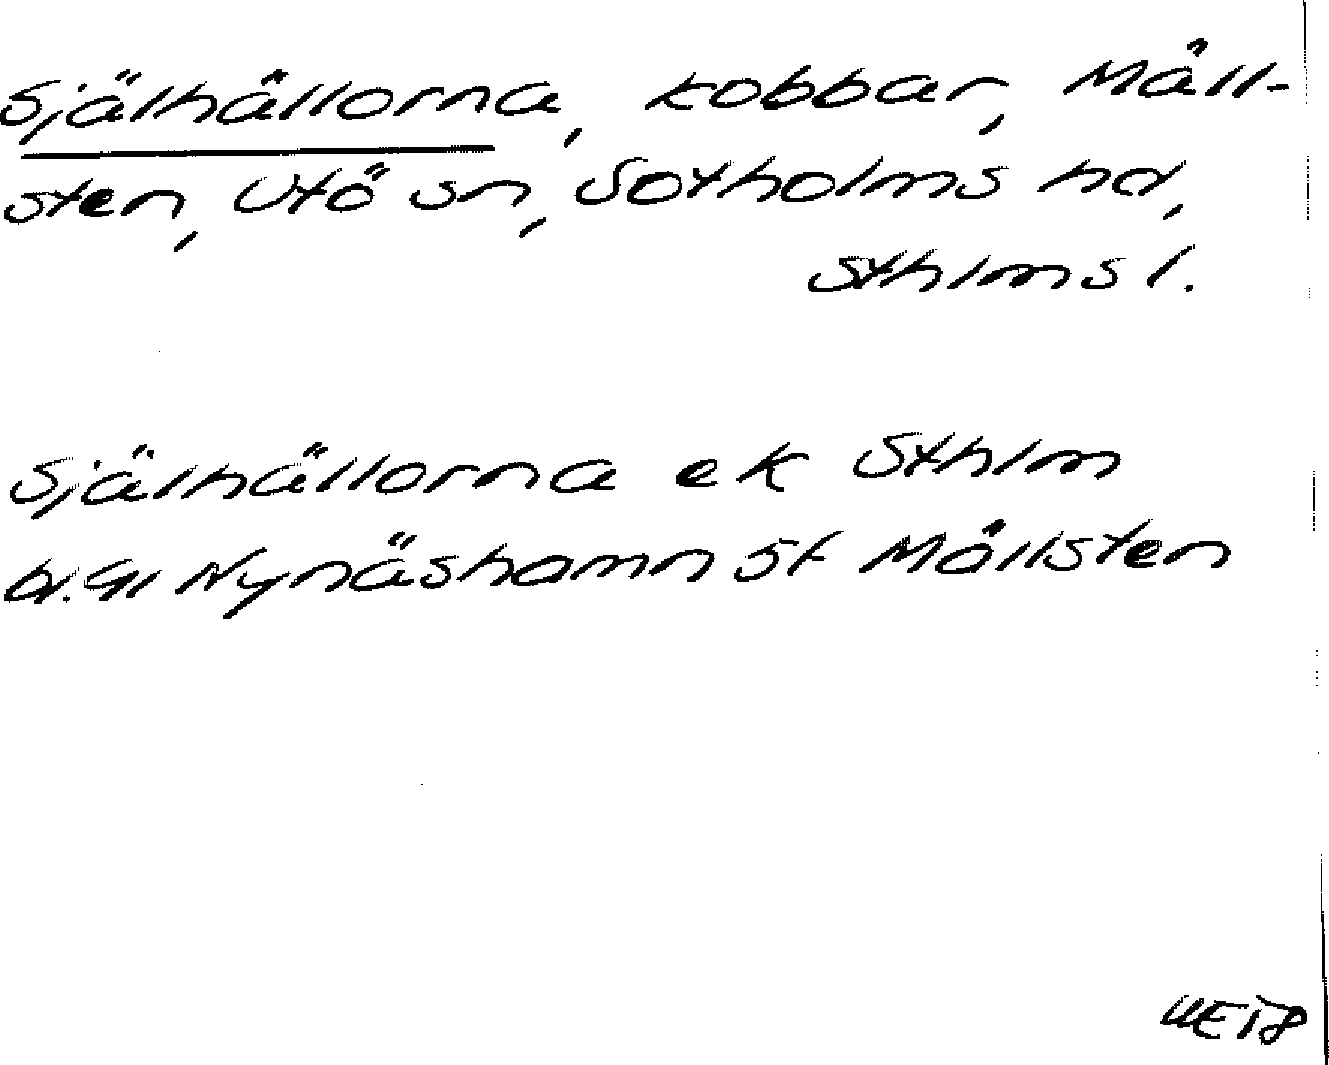 Själhällorna, kobbar, Måll-
sten, Utö sn, Sotholms hd,
Sthlms l.
Själhällorna ek Sthlm
Nynäshamn 5f Mållsten